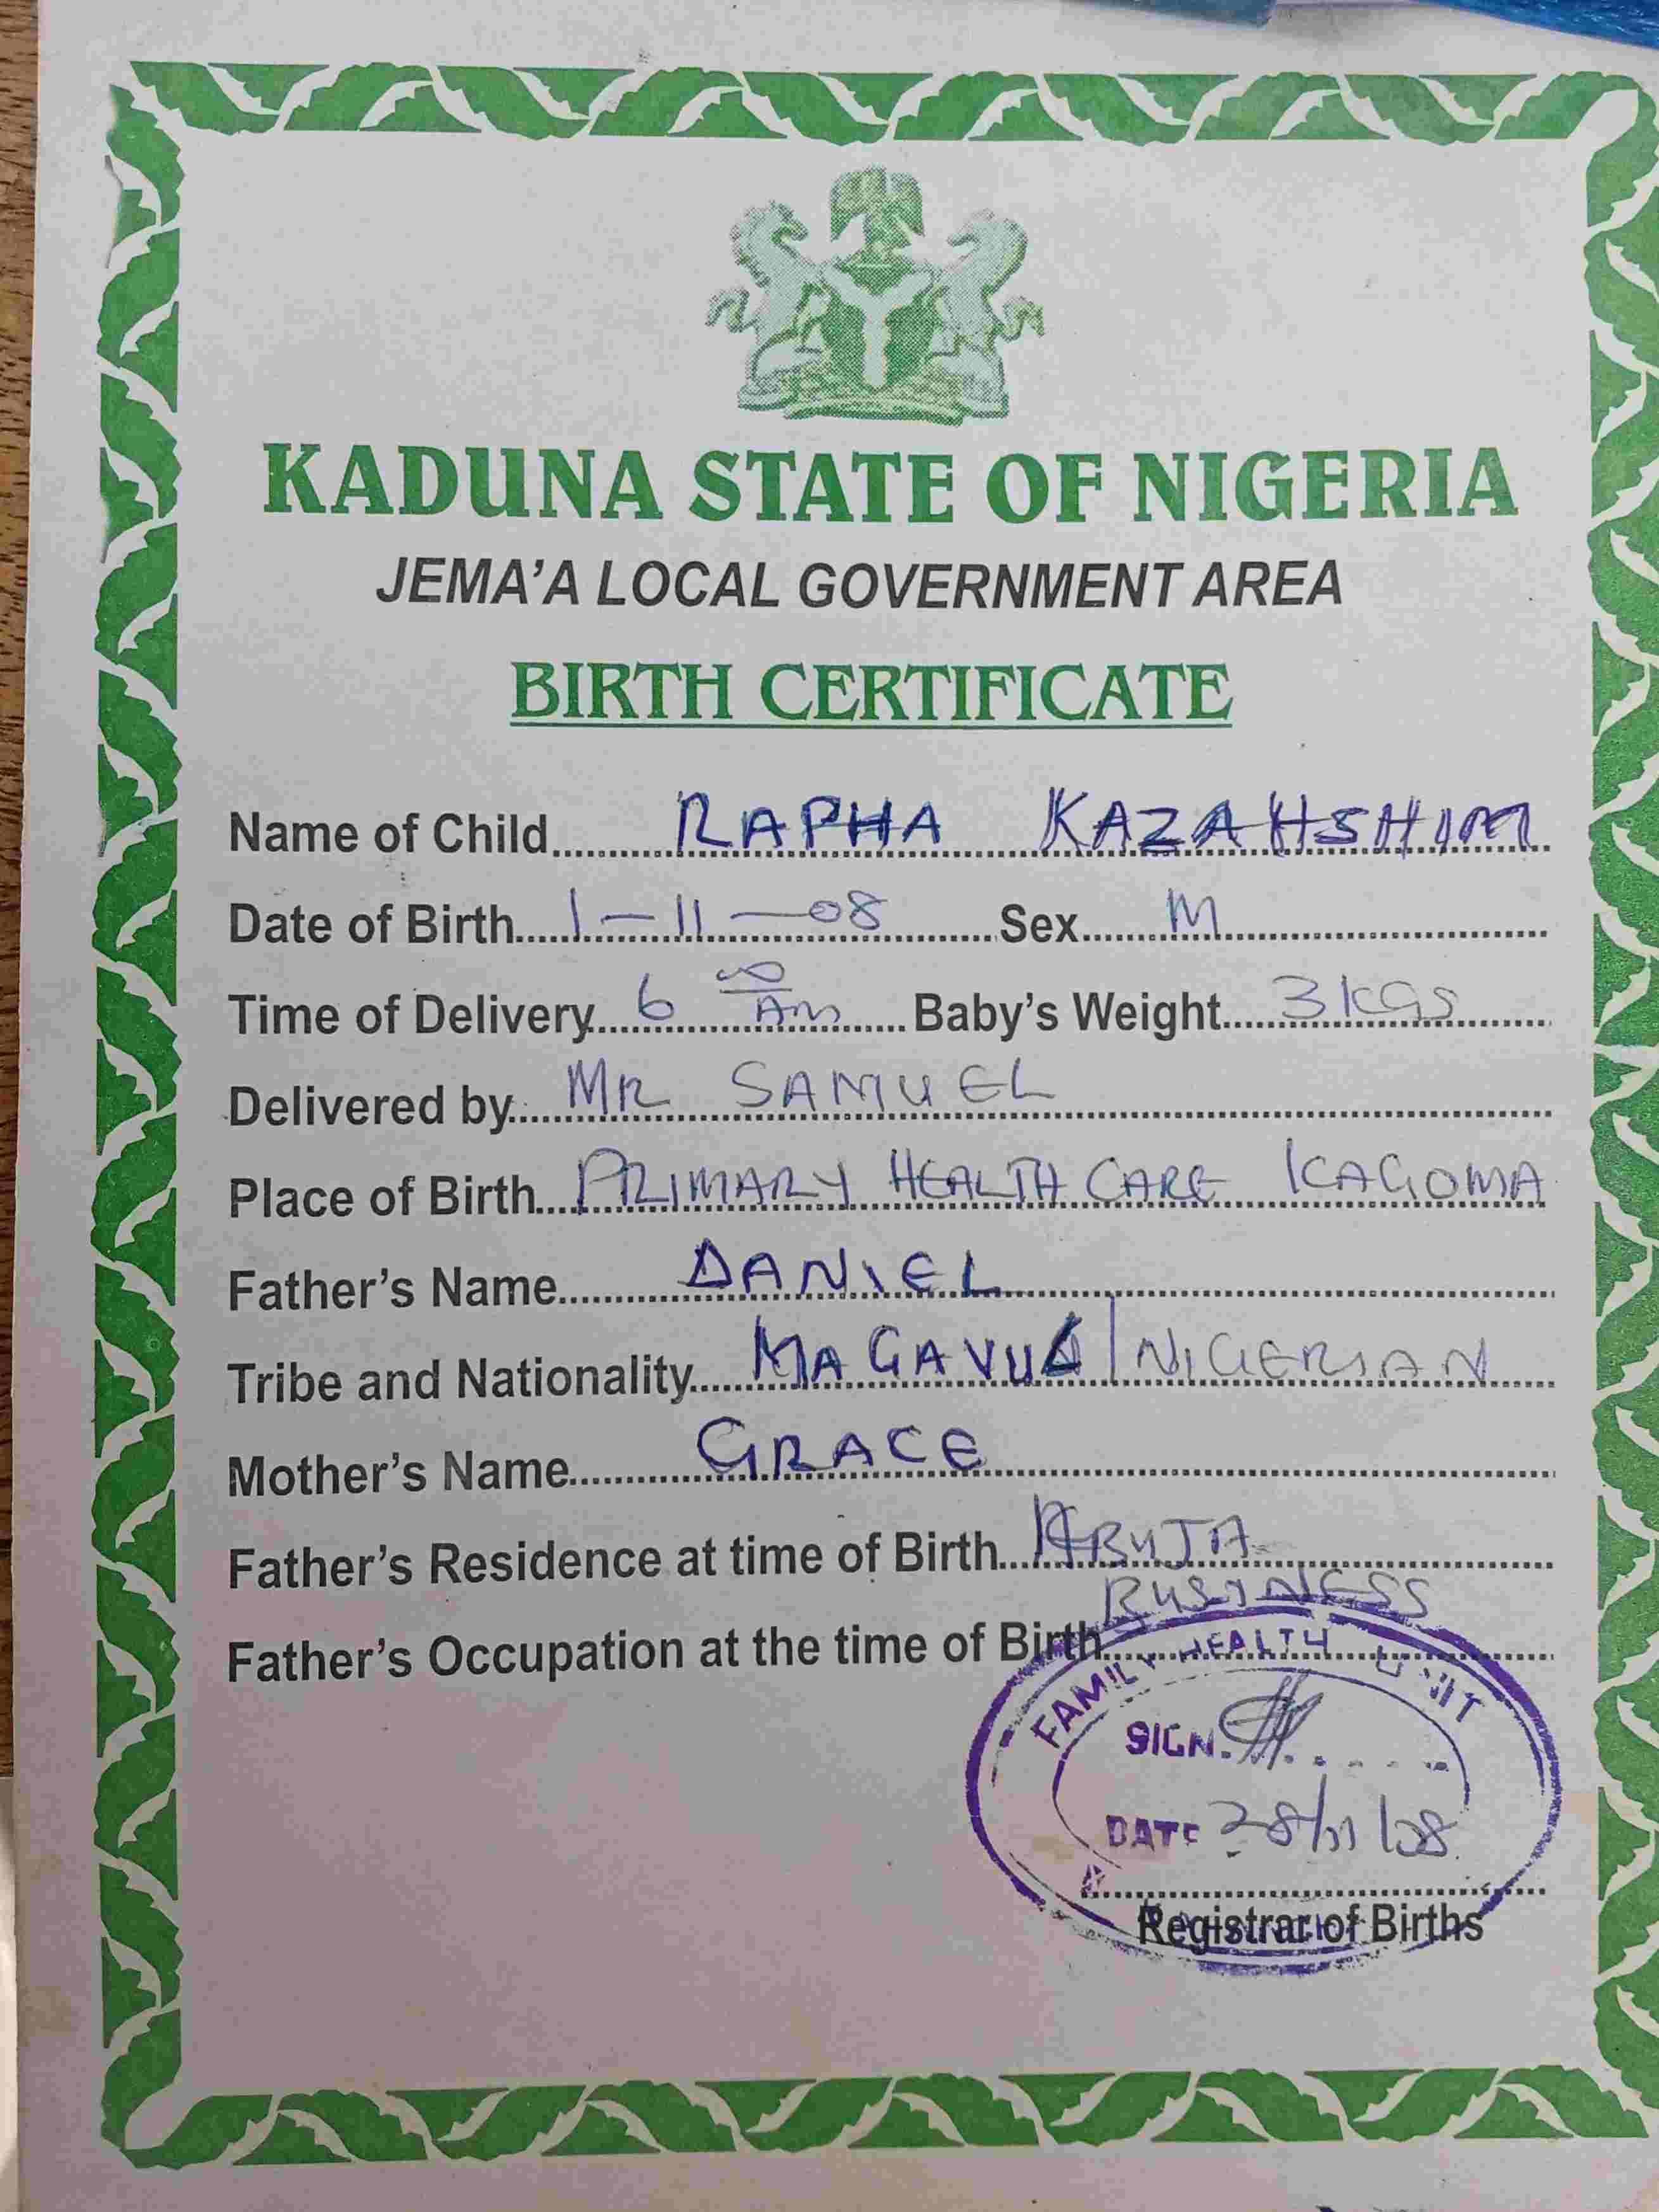 KADUNA STATE OF NIGERIA
JEMA'A LOCAL GOVERNMENT AREA
BIRTH CERTIFICATE
Name of Child RAPHA KAZAHSHIM
Date of Birth 1-11-08 Sex M
Time of Delivery 6 00 AM Baby's Weight 3KGS
Delivered by MR SAMUEL
Place of Birth PRIMARY HEALTH CARE KAGOMA
Father's Name DANIEL
Tribe and Nationality / NIGERIAN
Mother's Name GRACE
Father's Residence at time of Birth ABUJA
Father's Occupation at the time of Birth BUSINESS
FAMILY HEALTH UNIT
SIGN.
DATE 28/11/08
Registrar of Births